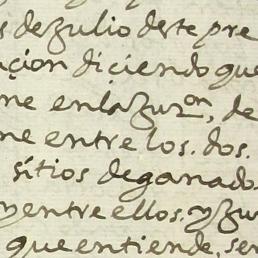 s dezulio deste pre
açion diçiendo que
ne enlazur.on, de
ne entre los. dos.
sítios deganado.
yentre ellos. yzu
que entiende. ser